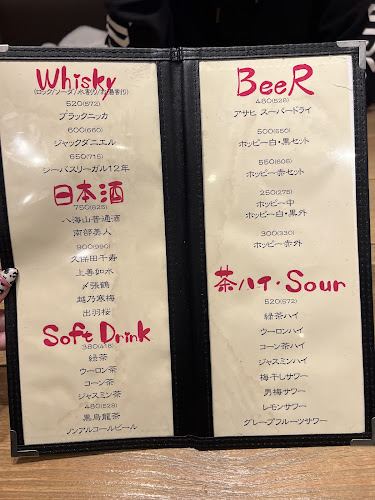 Whisky
(ロック/ソーダ/水割り/お湯割り)
520(572)
ブラックニッカ
600(660)
ジャックダニエル
650(715)
シーバスリーガル12年
日本酒
750(825)
八海山普通酒
南部美人
900(990)
久保田千寿
上善如水
〆張鶴
越乃寒梅
出羽桜
Soft Drink
380(418)
緑茶
ウーロン茶
コーン茶
ジャスミン茶
480(528)
黒烏龍茶
ノンアルコールビール
BeeR
480(528)
アサヒ スーパードライ
500(550)
ホッピー白・黒セット
550(605)
ホッピー赤セット
250(275)
ホッピー中
ホッピー白・黒外
300(330)
ホッピー赤外
茶ハイ・Sour
520(572)
緑茶ハイ
ウーロンハイ
コーン茶ハイ
ジャスミンハイ
梅干しサワー
男梅サワー
レモンサワー
グレープフルーツサワー